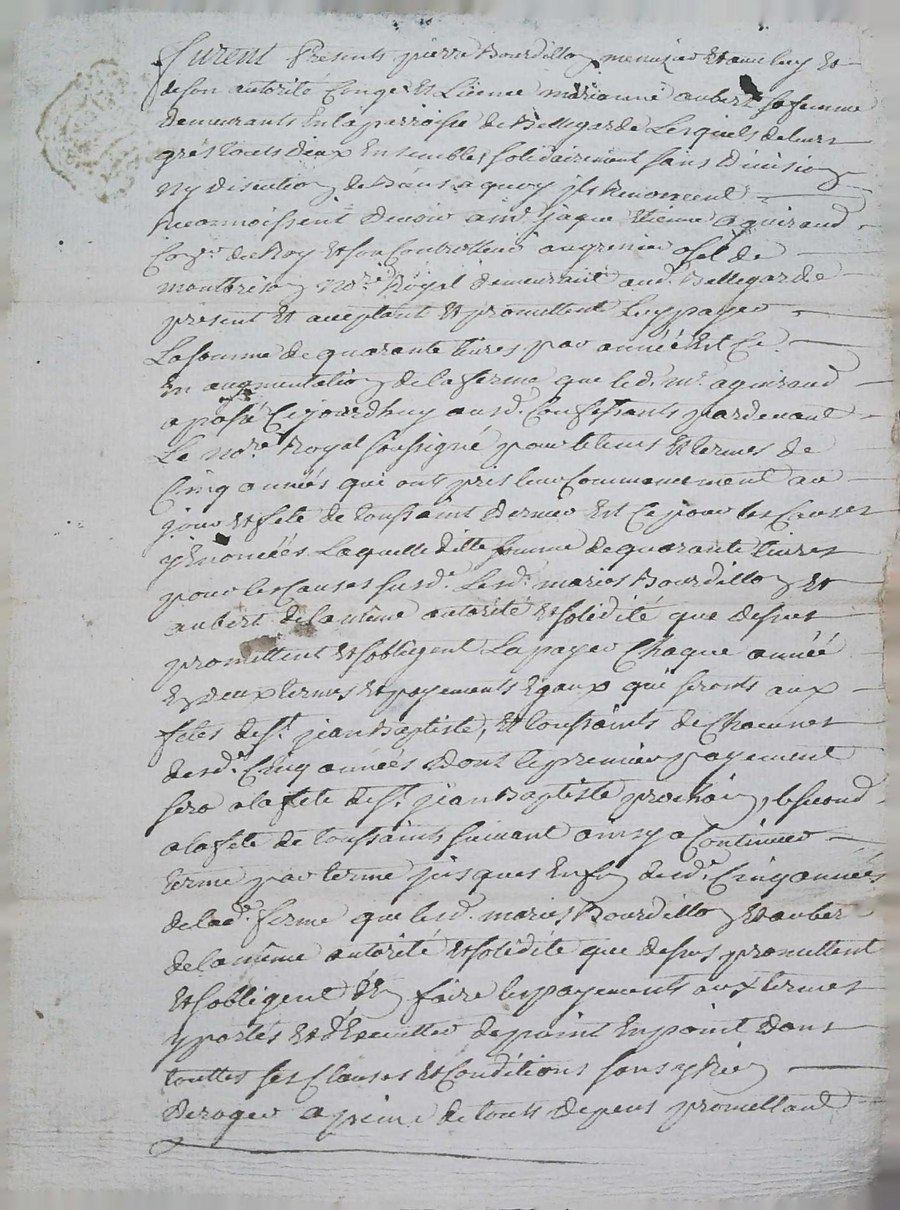 Furent Presents pierre Bourdillon menusier Et au luy Et
de son autorité Congé Et Licence marianne aubert sa femme
demeurants En la parroisse de Bellegarde Lesquels de leurs
grés touts deux Ensembles solidairement sans Division
Ny discution de Biens a quoy ils Renoncent
Reconnoissent devoir a mr. jaque Etienne aguiraud
Conser. du Roy Et son Controlleur au grenier a sel de
montbrison Nore. Royal demeurant aud. Bellegarde
present Et acceptant Et promettent Luy payer
La somme de quarante livres par année Et Ce
En augmentation de la ferme que led. mr. aguiraud
a passé Cejourdhuy ausd. Confessants pardevant
Le Nore. Royal soussigné pour le tems Et termes de
Cinq années qui ont pris leur Commencement au
jour Et fete de toussaint dernier Et Ce pour les Causes
y Enoncées Laquelle ditte somme de quarante livres
pour les Causes susd. Lesd. mariés Bourdillon Et
aubert de la même autorité Et solidité que dessus
promettent Et s'obligent La payer Chaque année
En deux termes Et payements Egaux qui seront aux
fetes de St. jean Baptiste, Et toussaints de Chacunes
desd. Cinq années dont le premier payement
sera a la fete de St. jean Baptiste prochain, le second
a la fete de toussaints suivant ainsy a Continuer
terme par terme jusques En fin desd. Cinq années
de lad. ferme que lesd. mariés Bourdillon Et auber
de la même autorité Et solidité que dessus promettent
Et s'obligent d'En faire les payements aux termes
y portés Et d'Executter de point En point dans
touttes ses Clauses Et Conditions sans y Rien
deroger a peine de touts depens promettant